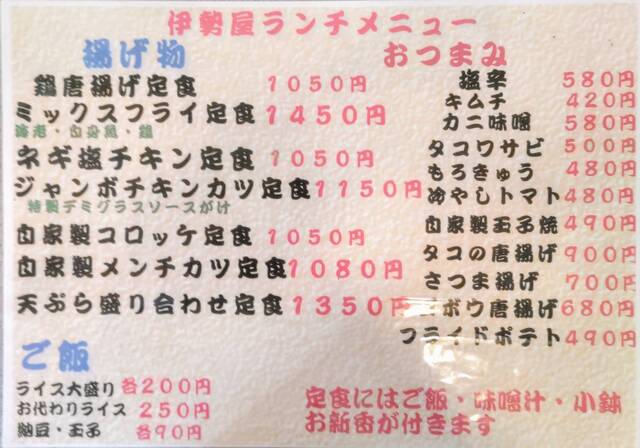 伊勢屋ランチメニュー
揚げ物
鶏唐揚げ定食 1050円
ミックスフライ定食 1450円
海老・白身魚・鶏
ネギ塩チキン定食 1050円
ジャンボチキンカツ定食 1150円
特製デミグラスソースがけ
自家製コロッケ定食 1050円
自家製メンチカツ定食 1080円
天ぷら盛り合わせ定食 1350円
ご飯
ライス大盛り 各200円
お代わりライス 250円
納豆・玉子 各90円
おつまみ
塩辛 580円
キムチ 420円
カニ味噌 580円
タコワサビ 500円
もろきゅう 480円
冷やしトマト 480円
自家製玉子焼 490円
タコの唐揚げ 900円
さつま揚げ 700円
ボウ唐揚げ 680円
フライドポテト 490円
定食にはご飯・味噌汁・小鉢
お新香が付きます